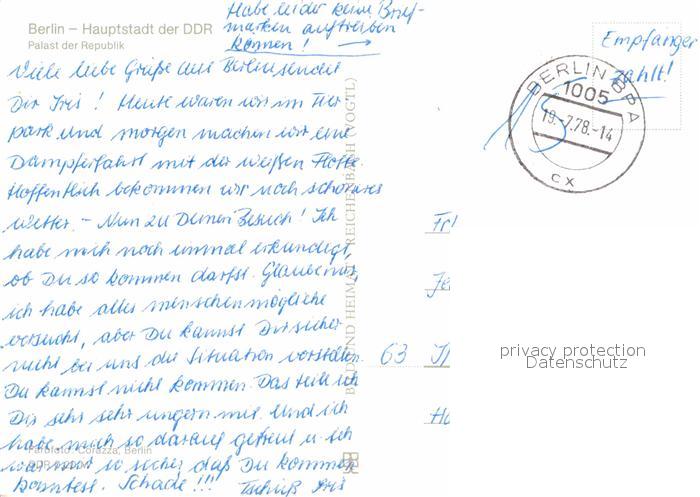 Habe leider keine Brief-
marken auftreiben
können! →
Berlin – Hauptstadt der DDR
Palast der Republik
Empfänger
zahlt!
BERLIN BPA
1005
19.-7.78.-14
cx
Viele liebe Grüße aus Berlin sendet
Dir Iris! Heute waren wir im Tier-
park und morgen machen wir eine
Dampferfahrt mit der weißen Flotte.
Hoffentlich bekommen wir noch schöneres
Wetter. – Nun zu Deinen Besuch! Ich
habe mich noch einmal erkundigt,
ob Du so kommen darfst. Glaube mir,
ich habe alles menschenmögliche
versucht, aber Du kannst Dir sicher
nicht bei uns die Situation vorstellen.
Du kannst nicht kommen. Das teile ich
Dir sehr sehr ungern mit. Und ich
habe mich so darauf gefreut u. ich
war mir so sicher, daß Du kommen
könntest. Schade!!! Tschüß Iris
Farbfoto: Corazza, Berlin
BILD UND HEIMAT REICHENBACH (VOGTL)
63
privacy protection
Datenschutz